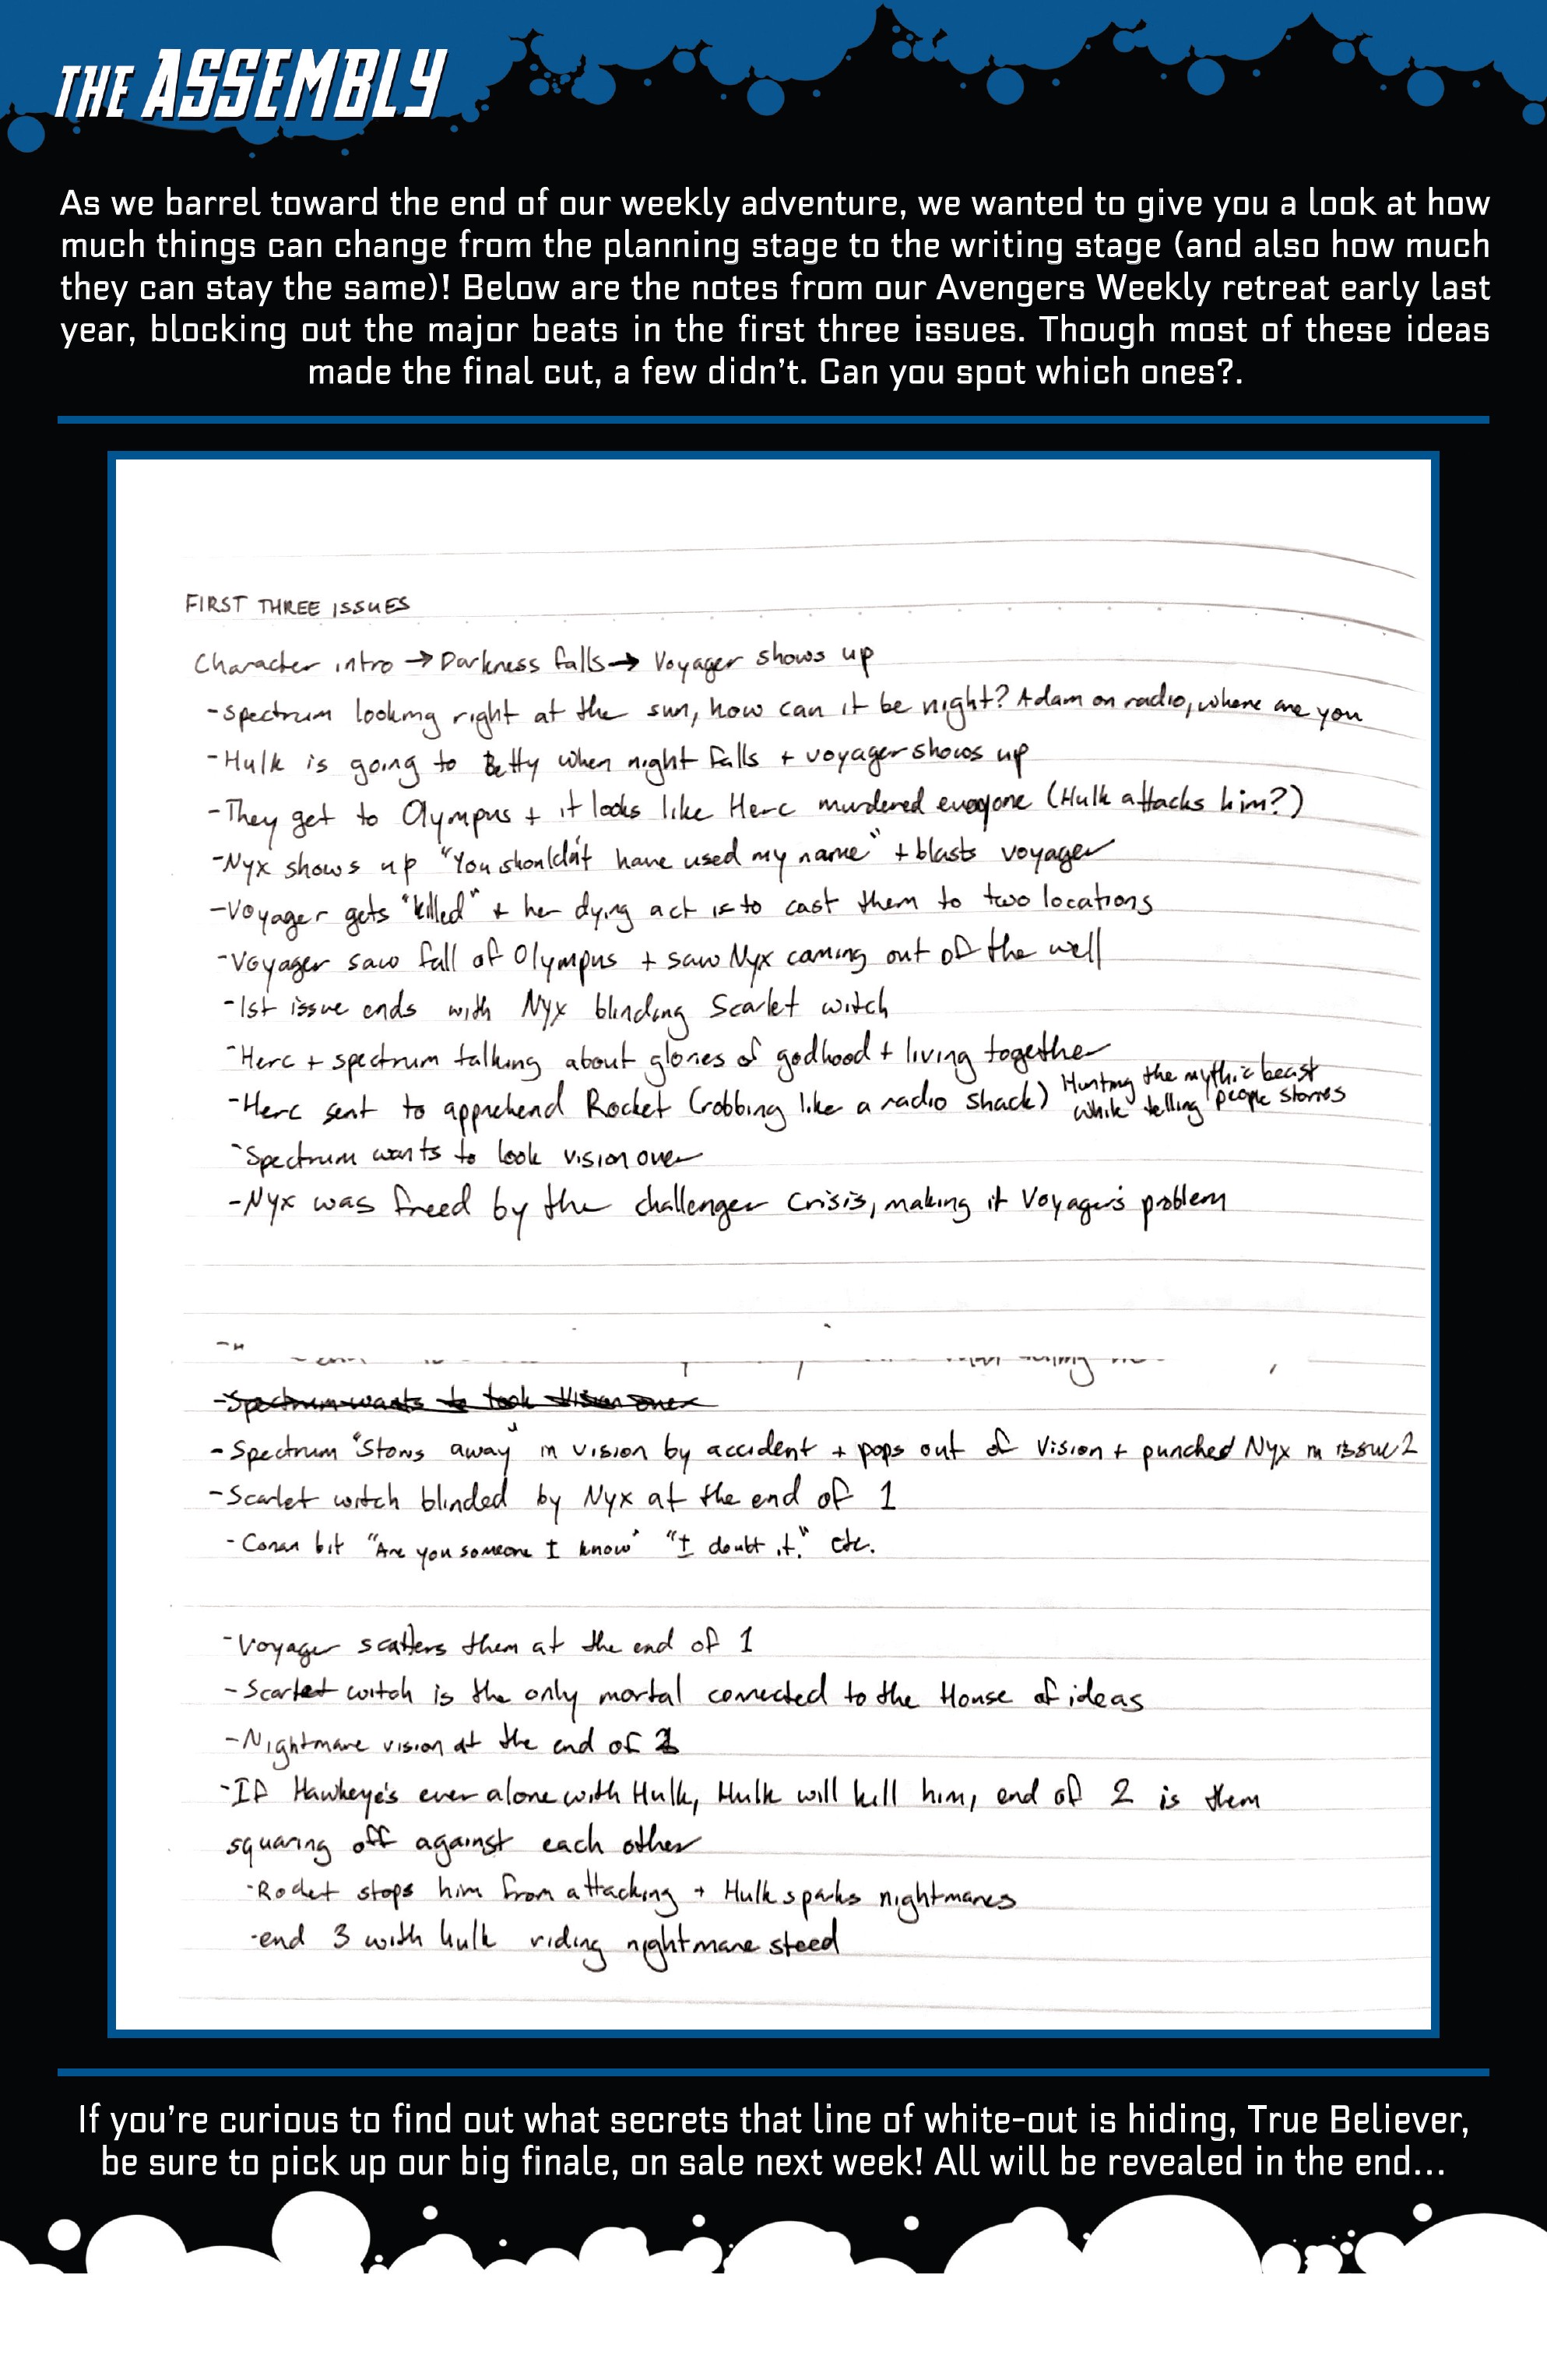 THE ASSEMBLY
As we barrel toward the end of our weekly adventure, we wanted to give you a look at how
much things can change from the planning stage to the writing stage (and also how much
they can stay the same)! Below are the notes from our Avengers Weekly retreat early last
year, blocking out the major beats in the first three issues. Though most of these ideas
made the final cut, a few didn't. Can you spot which ones?.
FIRST THREE ISSUES
Character intro → Darkness falls → Voyager shows up
-Spectrum looking right at the sun, how can it be night? Adam on radio, where are you
-Hulk is going to Betty when night falls + voyager shows up
-They get to Olympus + it looks like Herc murdered everyone (Hulk attacks him?)
-Nyx shows up "You shouldn't have used my name" + blasts voyager
-Voyager gets "killed" + her dying act is to cast them to two locations
-Voyager saw fall of Olympus + saw Nyx coming out of the well
-1st issue ends with Nyx blinding Scarlet witch
-Herc + spectrum talking about glories of godhood + living together
-Herc sent to apprehend Rocket (robbing like a radio shack) Hunting the mythic beast
while telling people stories
-Spectrum wants to look vision over
-Nyx was freed by the challenger Crisis, making it Voyager's problem
-Spectrum wants to look Vision over
-Spectrum "Stows away" in vision by accident + pops out of Vision + punched Nyx in issue 2
-Scarlet witch blinded by Nyx at the end of 1
-Conan bit "Are you someone I know" "I doubt it." etc.
-Voyager scatters them at the end of 1
-Scarlet witch is the only mortal connected to the House of ideas
-Nightmare vision at the end of 2
-If Hawkeye's ever alone with Hulk, Hulk will kill him, end of 2 is them
squaring off against each other
-Rocket stops him from attacking + Hulk sparks nightmares
-end 3 with hulk riding nightmare steed
If you're curious to find out what secrets that line of white-out is hiding, True Believer,
be sure to pick up our big finale, on sale next week! All will be revealed in the end...